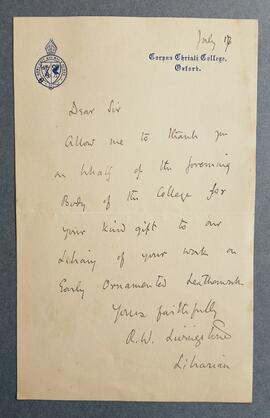 July 17
Corpus Christi College,
Oxford.
Dear Sir
Allow me to thank you
on behalf of the Governing
Body of the College for
your kind gift to our
Library of your work on
Early Ornamented Leatherwork
Yours faithfully
R.W. Livingstone
Librarian